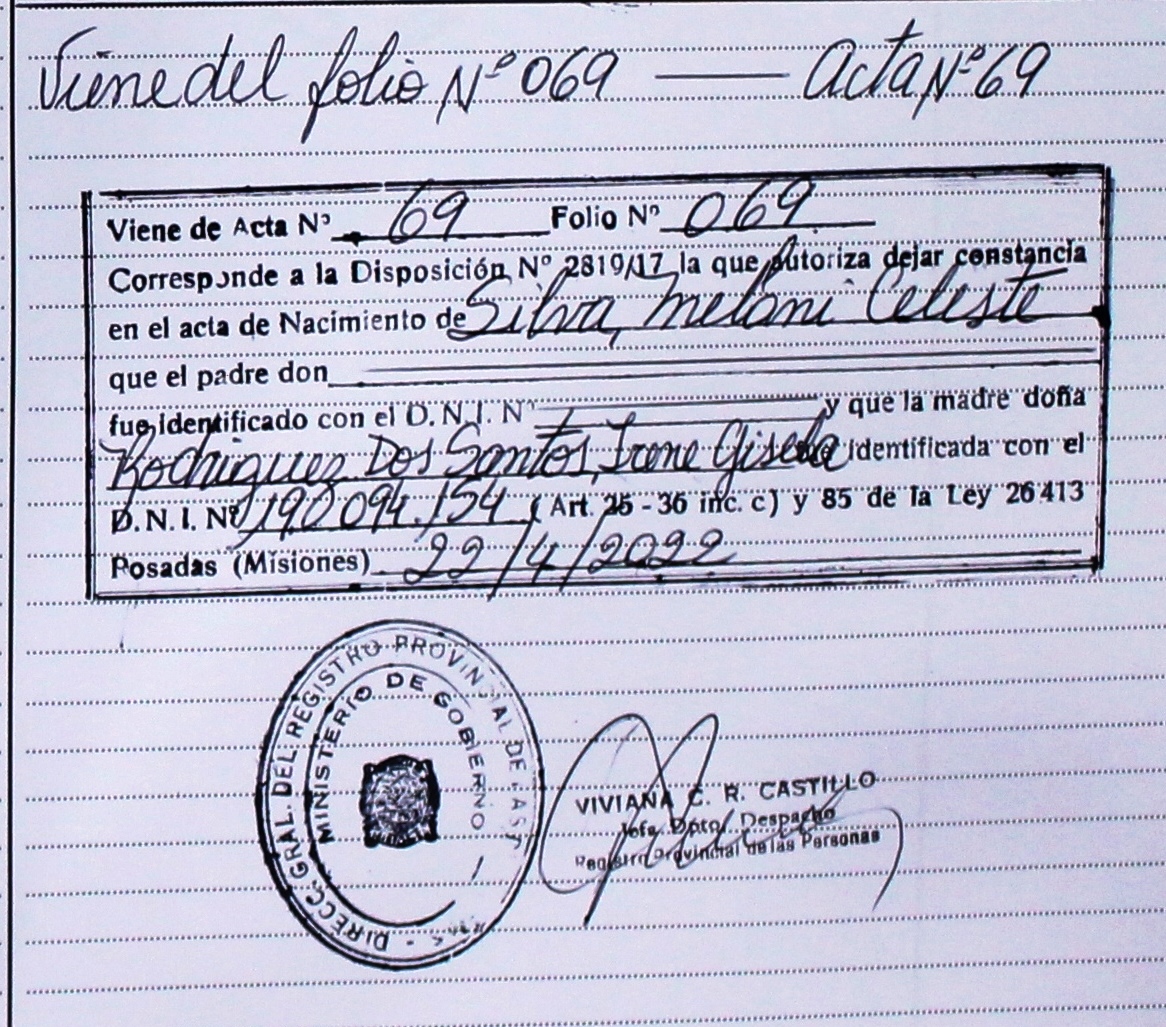 Viene del folio Nº 069 —— Acta Nº 69
Viene de Acta Nº 69 Folio Nº 069
Corresponde a la Disposición Nº 2819/17 la que autoriza dejar constancia
en el acta de Nacimiento de Silva, Melani Celeste
que el padre don
fue identificado con el D.N.I. Nº y que la madre doña
Rodriguez Dos Santos, Irene Gisela identificada con el
D.N.I. Nº 190094.154 ( Art. 25 - 36 inc. c) y 85 de la Ley 26413
Posadas (Misiones) 22/4/2022
DIRECC. GRAL. DEL REGISTRO PROVINCIAL DE LAS P
MINISTERIO DE GOBIERNO
VIVIANA C. R. CASTILLO
Jefa Dpto. Despacho
Registro Provincial de las Personas